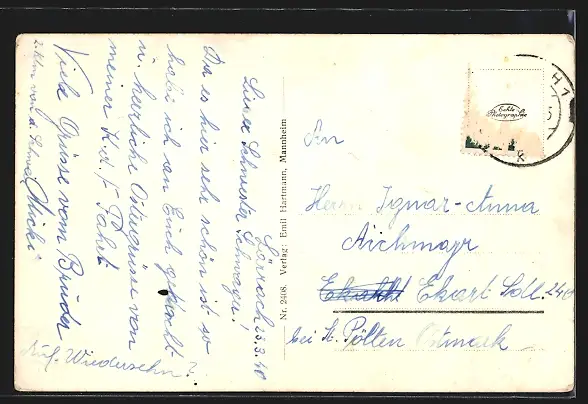 Lörrach 23.3.40
Liebe Schwester u. Schwager!
Da es hier sehr schön ist so
habe ich an Euch gedacht
u. herrliche Ostergrüsse von
meiner K.d.F. Fahrt
Viele Grüsse vom Bruder
von d. Schweiz
Auf Wiedersehn?
Nr. 2408. Verlag: Emil Hartmann, Mannheim
Echte
Photographie
An
Herrn Igmar-Anna
Aichmayr
Ekart
bei St. Pölten Ostmark